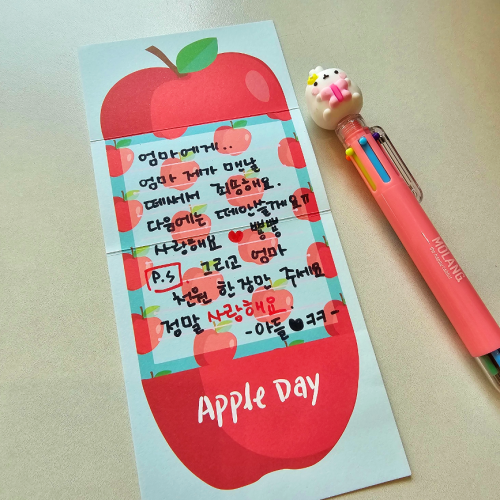 엄마에게..
엄마 제가 매날
떼써서 죄띵해요.
다음에는 떼안쓸게요ㅠ
사랑해요 ♥ 뿅뿅
P.S 그리고 엄마
천원 한장만 주세요
정말 사랑해요
-아들♥ㅋㅋ-
Apple Day
MOLANG